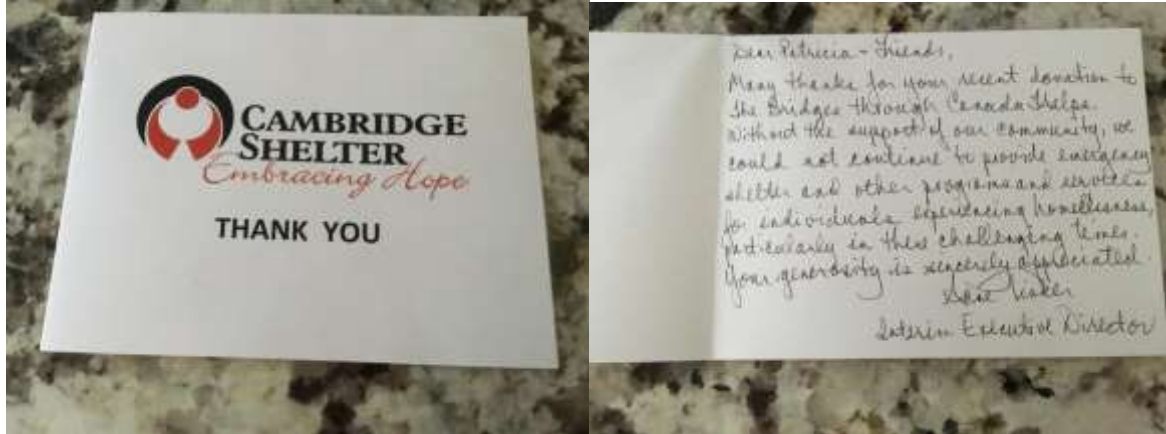 CAMBRIDGE
SHELTER
Embracing Hope
THANK YOU
Dear Patricia + Friends,
Many thanks for your recent donation to
The Bridges through Canada Helps.
Without the support of our community, we
could not continue to provide emergency
shelter and other programs and services
for individuals experiencing homelessness,
particularly in these challenging times.
Your generosity is sincerely appreciated.
Interim Executive Director